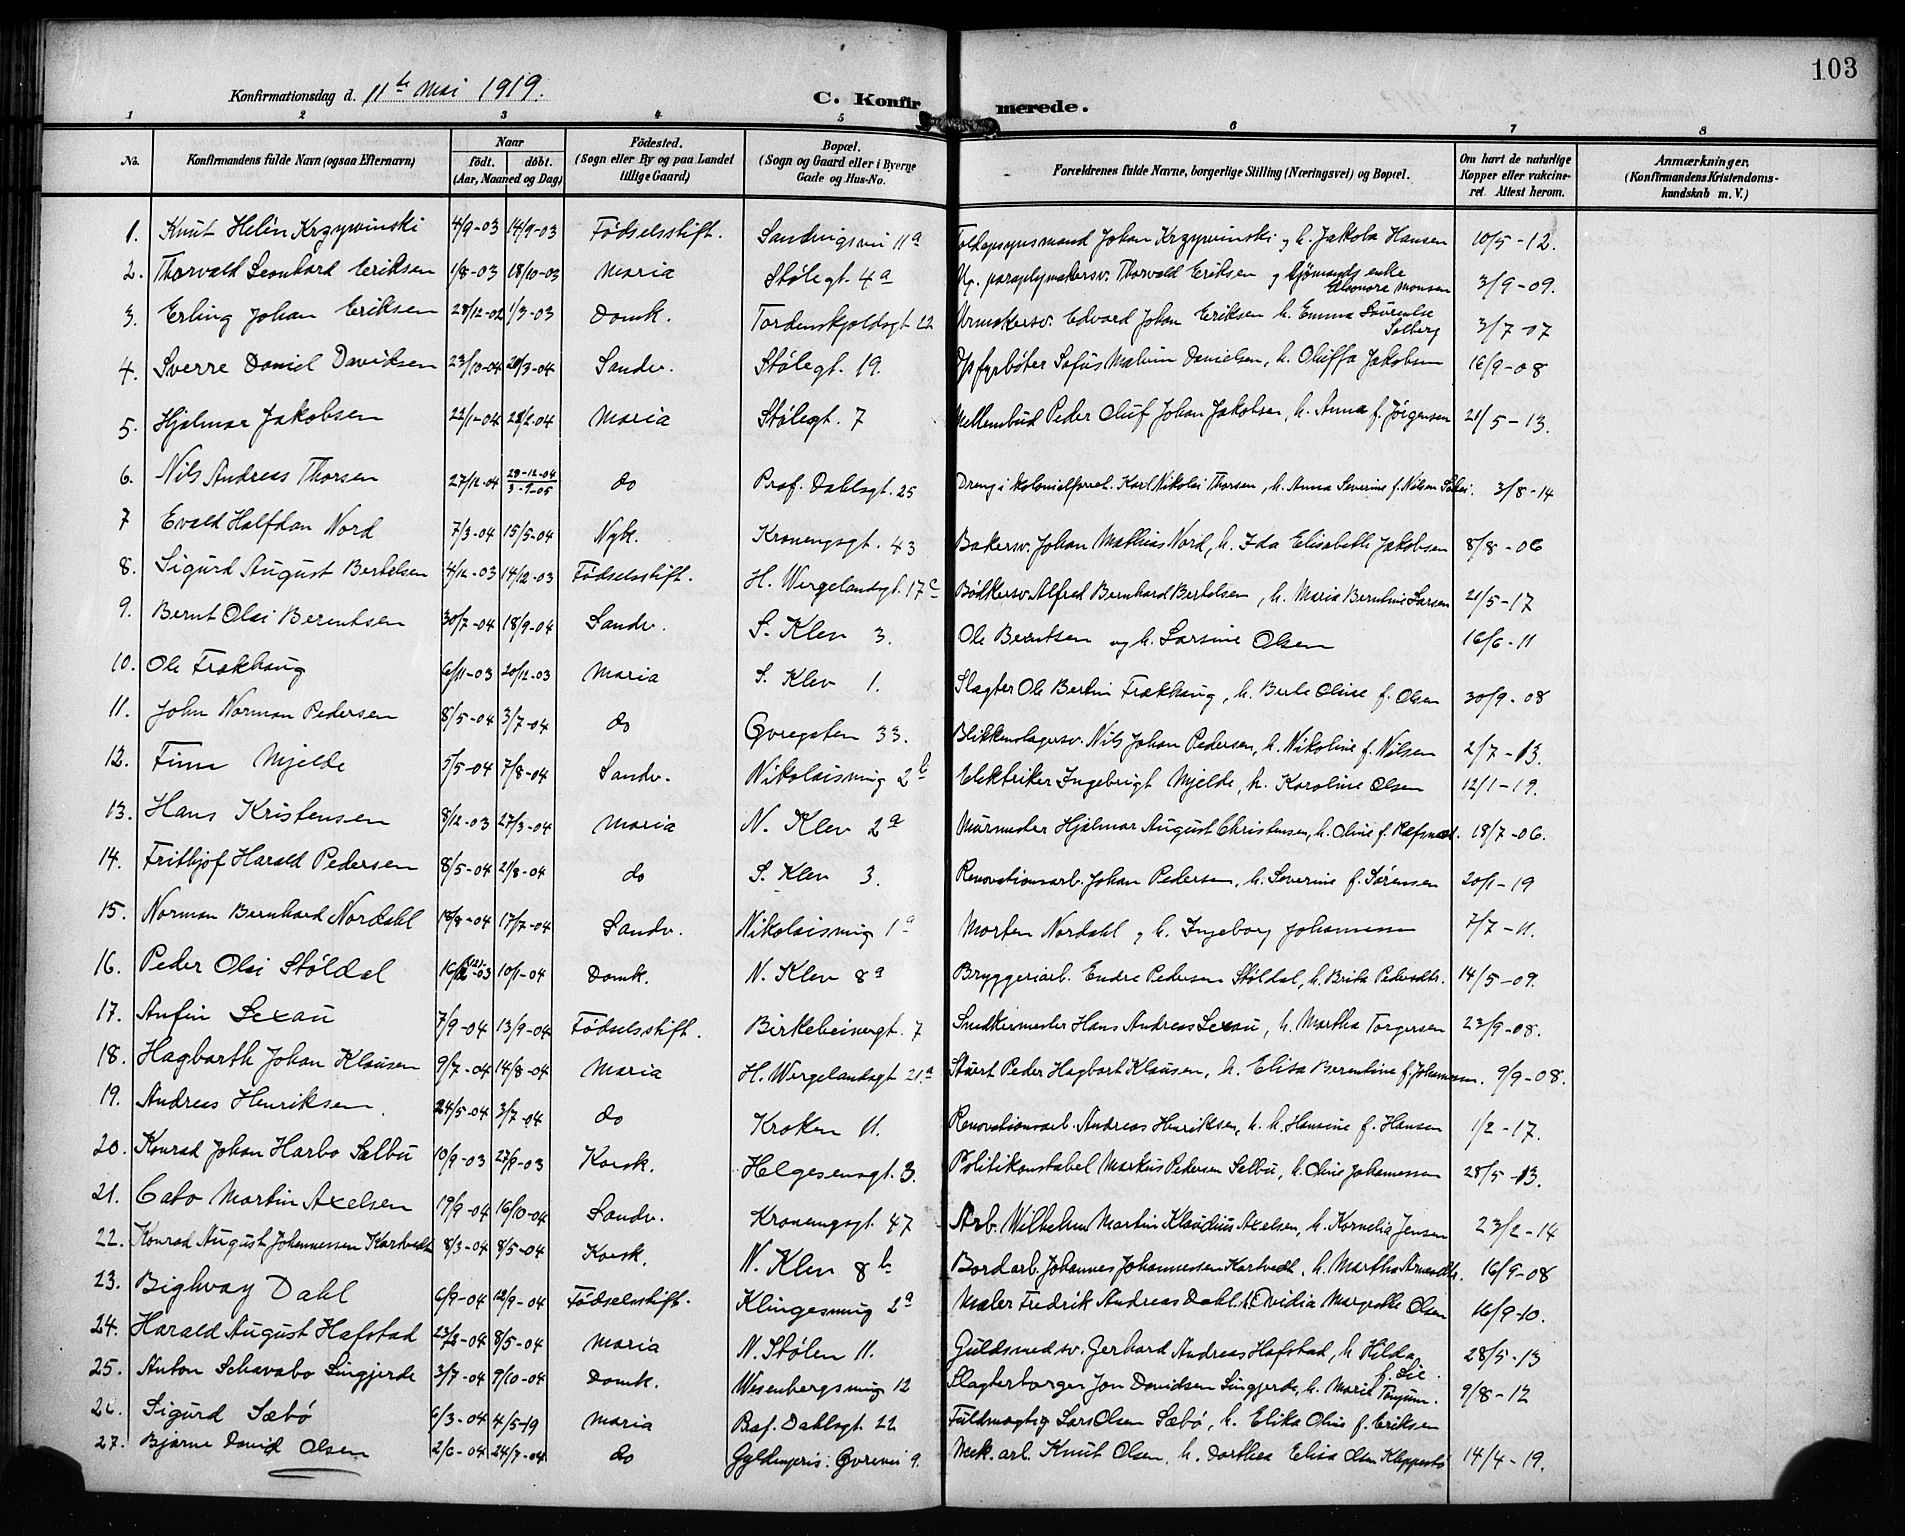 103
Konfirmationsdag d. 11te Mai 1919.
C. Konfirmerede.
1 2 3 4 5 6 7 8
No. Konfirmandens fulde Navn (ogsaa Efternavn) Naar født. døbt. (Aar, Maaned og Dag) Fødested. (Sogn eller By og paa Landet tillige Gaard) Bopæl. (Sogn og Gaard eller i Byerne Gade og Hus-No. Forældrenes fulde Navne, borgerlige Stilling (Næringsvei) og Bopæl. Om havt de naturlige Kopper eller vakcineret Attest herom. Anmærkninger, (Konfirmandens Kristendomskundskab m. V.)
1. Knut Helén Krzywinski 4/9-03 14/9-03 Fødselsstift. Sandvigsvei 11a Toldopsynsmand Johan Krzywinski og h. Jakoba Hansen 10/5-12.
2. Thorvald Leonhard Eriksen 1/8-03 18/10-03 Maria Stølegt. 4a paraplymakersv. Thorvald Eriksen og sjømands enke Eleonore Monsen 3/9-09.
3. Erling Johan Eriksen 28/12-02 1/3-03 Domk. Tordenskjoldsgt 22 Urmakersv. Edvard Johan Eriksen h. Emma Laurentse Solberg 3/7-07
4. Sverre Daniel Davidsen 23/10-04 20/3-04 Sandv. Stølegt. 19. fyrbøter Sofus Malvin Danielsen, h. Oluffa Jakobsen 16/9-08
5. Hjalmar Jakobsen 22/1-04 28/2-04 Maria Stølegt. 7 Mellembud Peder Oluf Johan Jakobsen, h. Anna f. Jørgensen 21/5-13.
6. Nils Andreas Thorsen 27/12-04 29-12-04 3-9-05 do Prof. Dahlsgt. 25 Dreng i kolonialforret. Karl Nikolai Thorsen, h. Anna Severine f. Nilsen 3/8-14
7 Evald Halfdan Nord 7/3-04 15/5-04 Nyk. Kronengsgt. 43 Bakersv. Johan Mathias Nord, h. Ida Elisabeth Jakobsen 8/8-06
8. Sigurd August Bertelsen 4/12-03 14/12-03 Fødselsstift. H. Wergelandsgt. 17c Bødkersv. Alfred Bernhard Bertelsen, h. Maria Berntine Larsen 21/5-17
9. Bernt Olai Berentsen 30/7-04 18/9-04 Sandv. S. Klev 3. Ole Berntsen og h. Larsine Olsen 16/6-11
10. Ole Trækhaug 6/11-03 20/12-03 Maria S. Klev 1. Slagter Ole Bertin Trækhaug, h. Berte Oline f. Olsen 30/9-08
11. John Norman Pedersen 8/5-04 3/7-04 do Øvregaten 33. Blikkenslagersv. Nils Johan Pedersen, h. Nikoline f. Nilsen 2/7-13.
12. Finn Mjelde 5/5-04 7/8-04 Sandv. Nikolaismug 2b Elektriker Ingebrigt Mjelde, h. Karoline Olsen 12/1-19.
13. Hans Kristensen 8/12-03 27/3-04 Maria N. Klev 2a Murmester Hjalmar August Christensen, h. Oline f. Refsnæs. 18/7-06.
14. Frithjof Harald Pedersen 8/5-04 21/8-04 do S. Klev 3. Renovationsarb. Johan Pedersen, h. Severine f. Sørensen 20/1-19
15. Norman Bernhard Nordahl 18/8-04 17/7-04 Sandv. Nikolaismug 1a Morten Nordahl og h. Ingeborg Johannesen 7/7-11.
16. Peder Olai Støldal 16/12-03 10/1-04 Domk. N. Klev 8a Bryggeriarb. Endre Pedersen Støldal, h. Brita Pedersdtr. 14/5-09.
17. Anfin Sexau 7/9-04 13/9-04 Fødselsstift. Birkebeinergt. 7 Snedkermester Hans Andreas Sexau, h. Martha Torgersen 23/9-08.
18. Hagbarth Johan Klausen 9/7-04 14/8-04 Maria H. Wergelandsgt 21a Stuert Peder Hagbart Klausen, h. Elisa Berentine f. Johannesen. 9/9-08.
19. Andreas Henriksen. 24/5-04 3/7-04 do Kroken 11. Renovationsarb. Andreas Henriksen, h. h. Hansine f. Hansen 1/2-17.
20. Konrad Johan Harbo Selbu 10/9-03 27/9-03 Korsk. Helgesensgt. 3. Politikonstabel Markus Pedersen Selbu, h. Oline Johannessen 28/5-13.
21. Cato Martin Axelsen 19/9-04 16/10-04 Sandv. Kronengsgt. 47 Arb. Wilhelm Martin Klaudius Axelsen, h. Kornelia Jensen 23/2-14
22. Konrad August Johannessen Kartvedt 8/3-04 8/5-04 Korsk. N. Klev 8b Bordarb. Johannes Johannessen Kartvedt, h. Martha Arnesdtr. 16/9-08
23. Bighvay Dahl 6/9-04 12/9-04 Fødselsstift. Klingesmug 2a Maler Fredrik Andreas Dahl h. Ovidia Margrethe Olsen 16/9-10.
24. Harald August Hafstad 23/2-04 8/5-04 Maria N. Stølen 11. Guldsmedsv. Gerhard Andreas Hafstad, h. Hilda f. Lie. 28/5-13
25. Anton Schavabo Lingjerde 3/7-04 9/10-04 Domk. Wesenbergsmug 12 Slagterborger Jon Davidsen Lingjerde, h. Marie Tonjum. 9/8-12
26. Sigurd Sæbø 6/3-04 4/5-19 Maria Prof. Dahlsgt 22 Fuldmægtig Lars Olsen Sæbø, h. Elika Oline f. Eriksen
27. Bjarne David Olsen 2/6-04 24/7-04 do Gyldenpris: Øvrevei 9. Mek. arb. Knut Olsen, h. Dorthea Elisa Olsen Kleppestø 14/4-19.